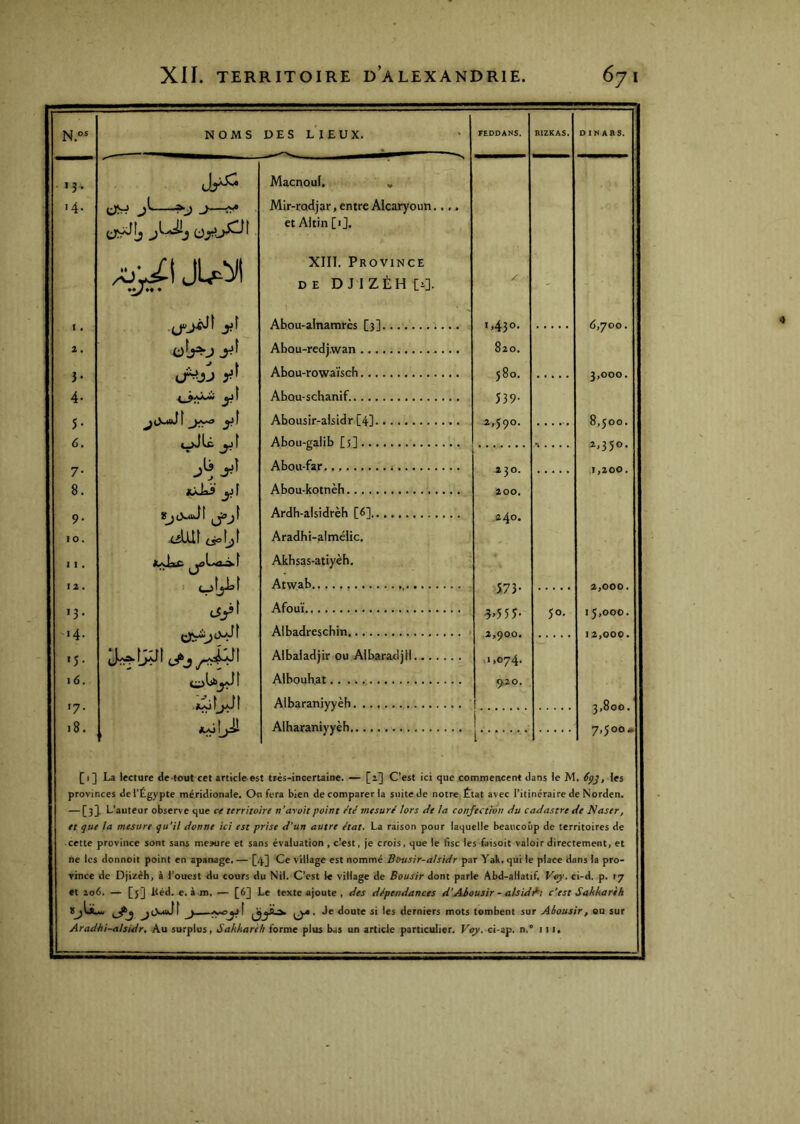 XII. TERRITOIRE D'ALEXANDRIE. 671
N.os NOMS DES LIEUX. FEDDANS. RIZKAS. DINARS.
13. Macnoul.
14. Mir-radjar, entre Alcaryoun....
et Altin [1].
XIII. PROVINCE
DE DJIZÈH [2].
1. ابو النمرس Abou-alnamrès [3].......... 1,430. ..... 6,700.
2. ابو رجوان Abou-redjwan............. 820.
3. ابو رويش Abou-rowaïsch............. 580. ..... 3,000.
4. ابو شنيف Abou-schanif.............. 539.
5. ابو صير السدر Abousir-alsidr [4]........... 2,590. ..... 8,500.
6. ابو غالب Abou-galib [5]............. ........ ..... 2,350.
7. ابو فار Abou-far................. 230. ..... 1,200.
8. ابو قطنه Abou-kotnèh.............. 200.
9. ارض السدرة Ardh-alsidrèh [6]............ 240.
10. اراضى الملك Aradhi-almélic.
11. اخصاص عطيه Akhsas-atiyèh.
12. اطواب Atwab.................. 573. ..... 2,000.
13. افوى Afouï.................... 3,555. 50. 15,000.
14. البدرشين Albadreschin.............. 2,900. ..... 12,000.
15. البلجير وهى البراجيل Albaladjir ou Albaradjil....... 1,074.
16. البوهات Albouhat................. 920.
17. البرانيه Albaraniyyèh.............. ........ ..... 3,800.
18. الحرانيه Alharaniyyèh.............. ........ ..... 7,500.
[1] La lecture de tout cet article est très-incertaine. — [2] C'est ici que commencent dans le M. 693, les
provinces de l'Égypte méridionale. On fera bien de comparer la suite de notre État avec l'itinéraire de Norden.
— [3]. L'auteur observe que ce territoire n'avoit point été mesuré lors de la confection du cadastre de Naser,
et que la mesure qu'il donne ici est prise d'un autre état. La raison pour laquelle beaucoup de territoires de
cette province sont sans mesure et sans évaluation, c'est, je crois, que le fisc les faisoit valoir directement, et
ne les donnoit point en apanage. — [4] Ce village est nommé Bousir-alsidr par Yak. qui le place dans la pro-
vince de Djizèh, à l'ouest du cours du Nil. C'est le village de Bousir dont parle Abd-allatif. Voy. ci-d. p. 17
et 206. — [5] Réd. e. à m. — [6] Le texte ajoute, des dépendances d'Abousir-alsidr: c'est Sakharèh
من حقوق ابوصير السدر وهى سقارة. Je doute si les derniers mots tombent sur Abousir, ou sur
Aradhi-alsidr. Au surplus, Sakharèh forme plus bas un article particulier. Voy. ci-ap. n.° 111.